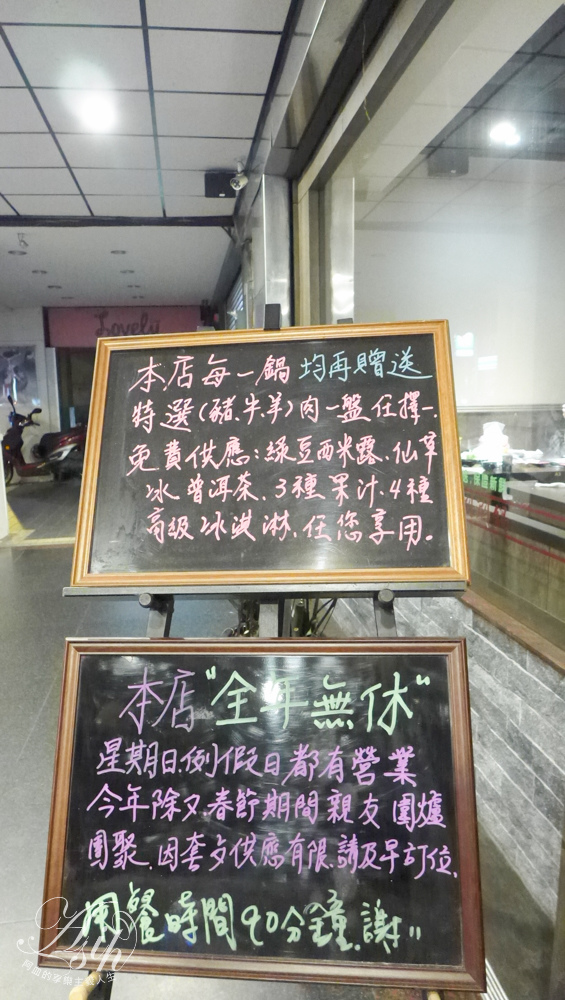 Lovely
本店每一鍋 均再贈送
特選(豬.牛.羊)肉一盤任擇一.
免費供應:綠豆西米露.仙草
冰 普洱茶.3種果汁.4種
高級冰淇淋.任您享用。
本店"全年無休"
星期日.例假日都有營業
今年除夕.春節期間親友圍爐
團聚.因套夕供應有限.請及早訂位.
用餐時間90分鐘.謝!!